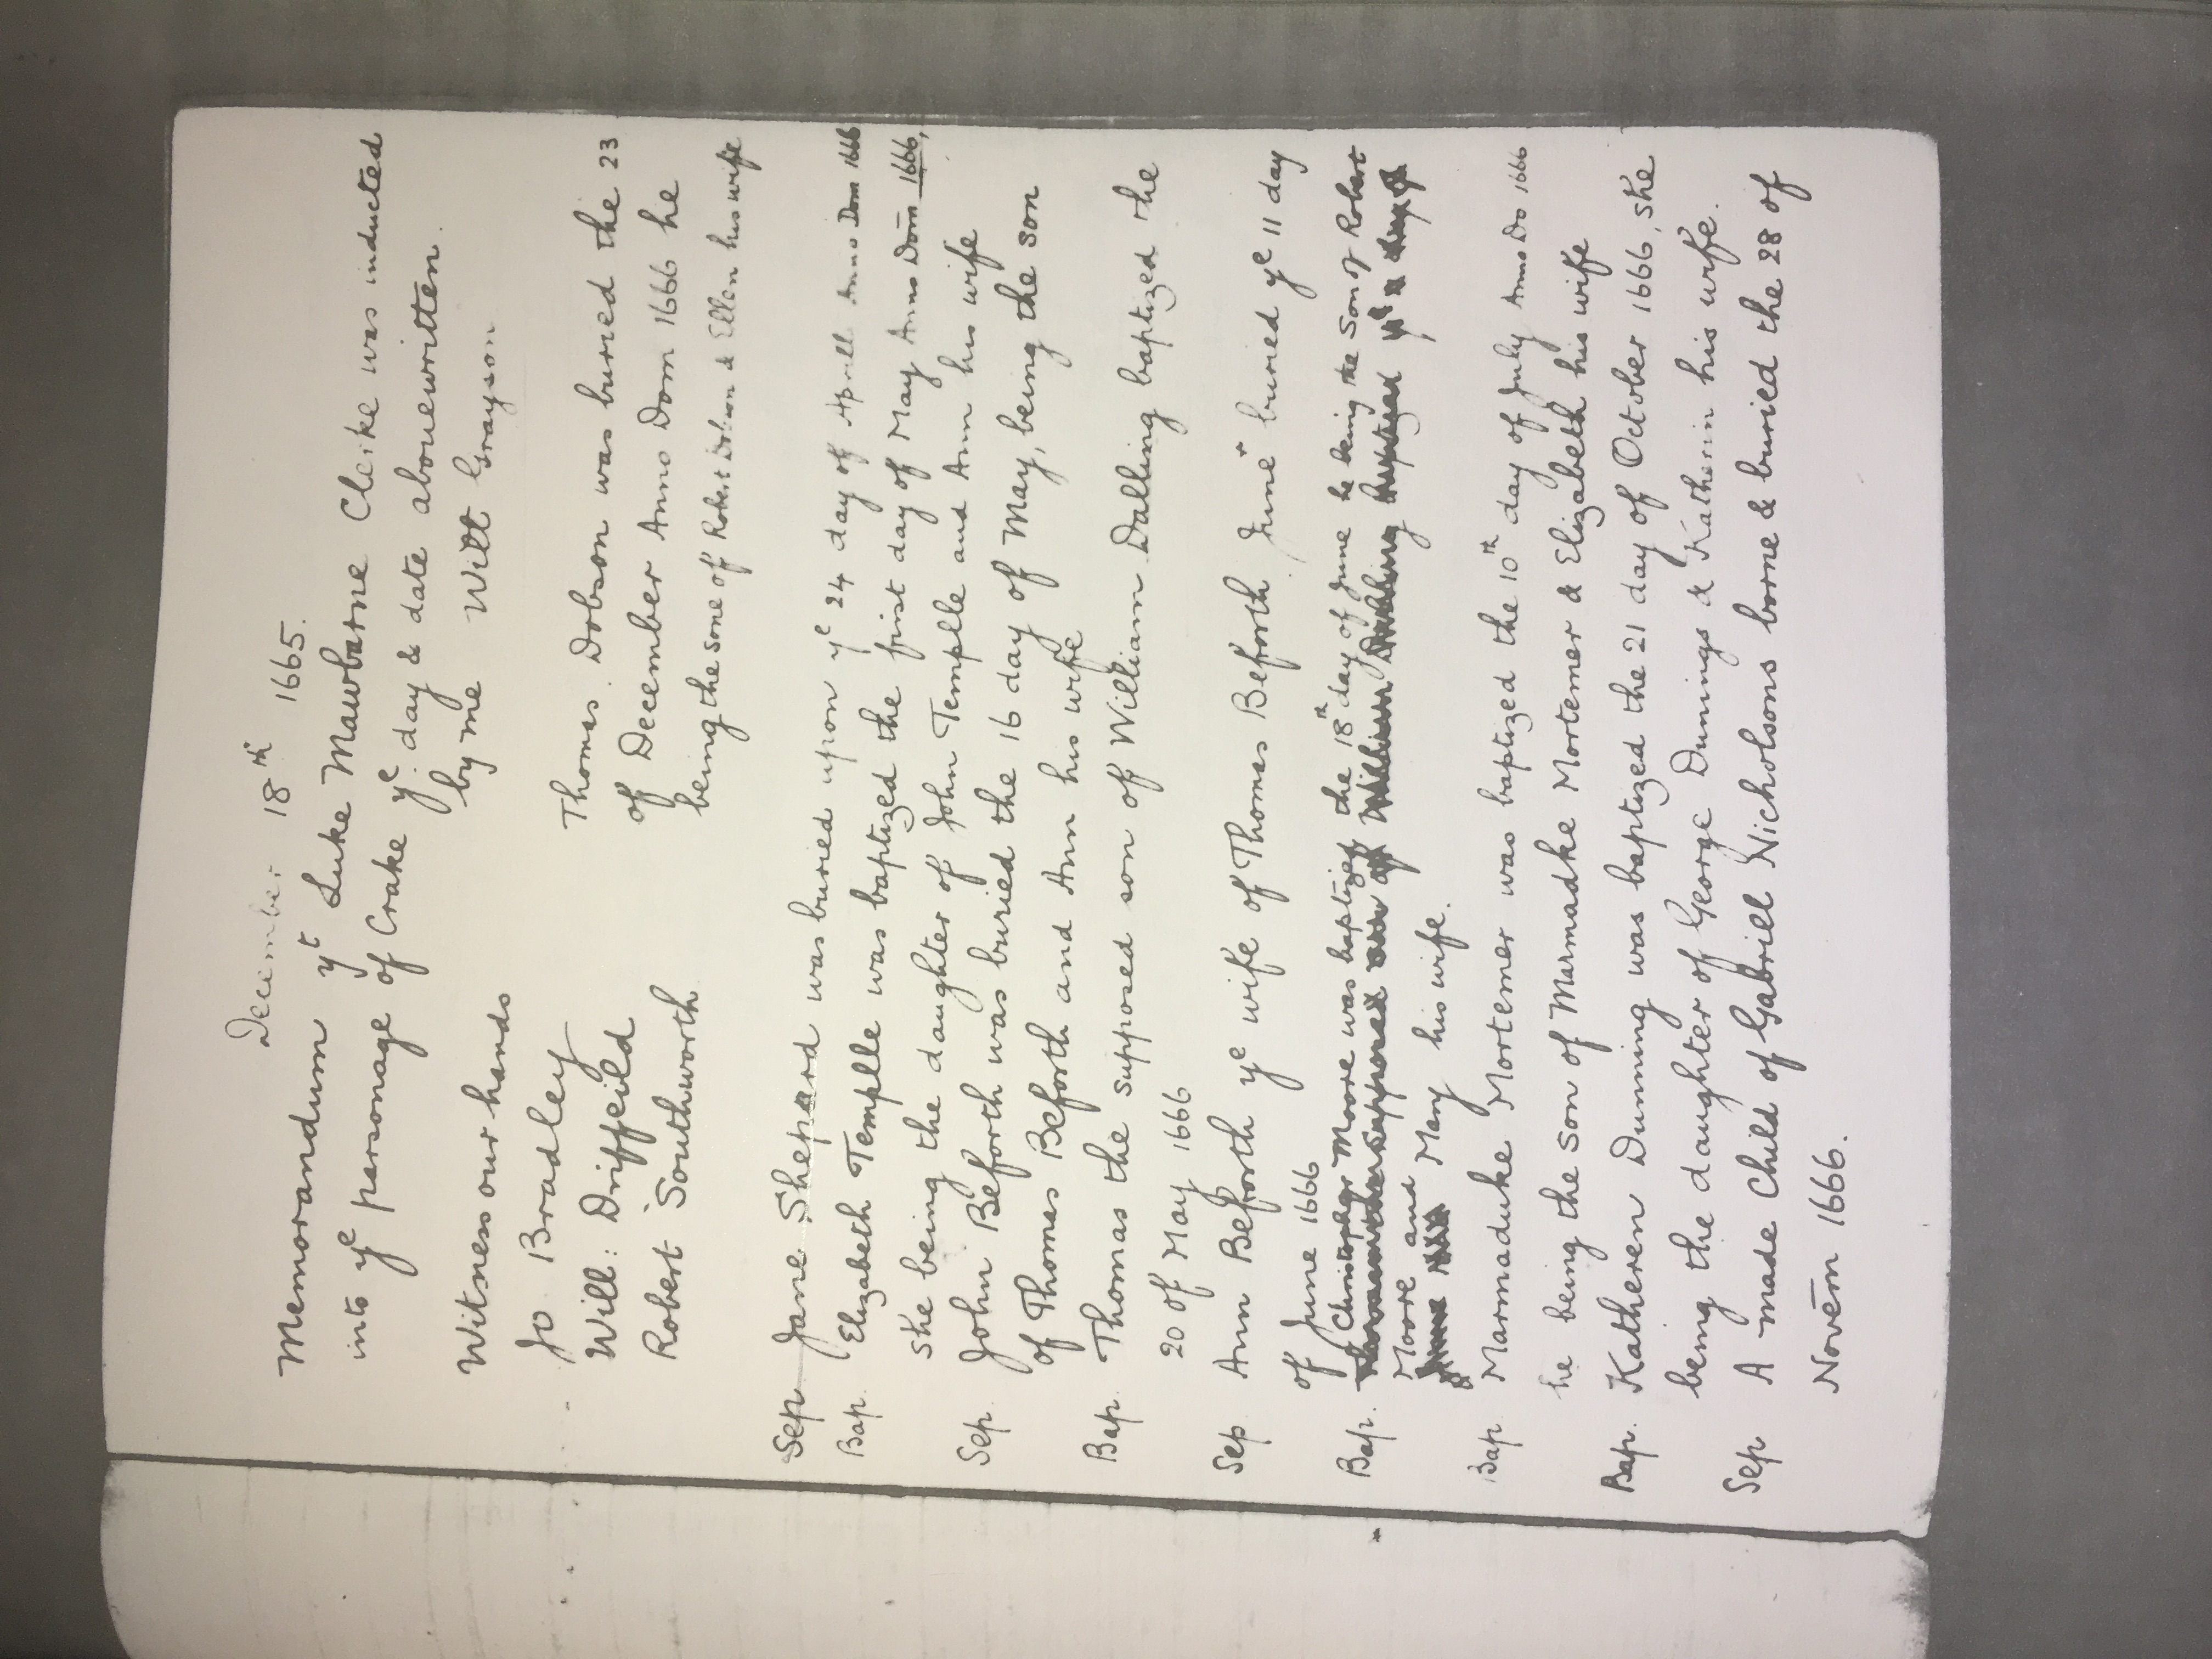 December 18th 1665.
Memorandum yt Luke Mawbarne Clerke was inducted
into ye personage of Crake ye day & date abouewritten.
by me Willt Grayson
Witness our hands
Jo Bradley
Will: Driffeild
Robert Southworth
Thomas Dobson was buried the 23
of December Anno Dom 1666 he
being the sone of Robert Dobson & Ellen his wife
Sep Jane Shepard was buried upon ye 24 day of Aprell Anno Dom 1666
Bap. Elizabeth Templle was baptized the first day of May Anno Dom 1666,
she being the daughter of John Templle and Ann his wife
Sep. John Beforth was buried the 16 day of May, being the son
of Thomas Beforth and Ann his wife
Bap. Thomas the supposed son of William Dalling baptized the
20 of May 1666
Sep Ann Beforth ye wife of Thomas Beforth June buried ye 11 day
of June 1666
Bap. Christopher Moore was baptized the 18th day of June he being the son of Robert
supposed son of William Dalling baptized ye day of
Moore and Mary his wife.
Bap Marmaduke Mortemer was baptized the 10th day of July Anno Do 1666
he being the son of Marmadke Mortemer & Elizabeth his wife
Bap. Katheren Dunning was baptized the 21 day of October 1666, she
being the daughter of George Dunnings & Katherin his wife.
Sep A made Child of Gabriell Nicholsons borne & buried the 28 of
Novem 1666.